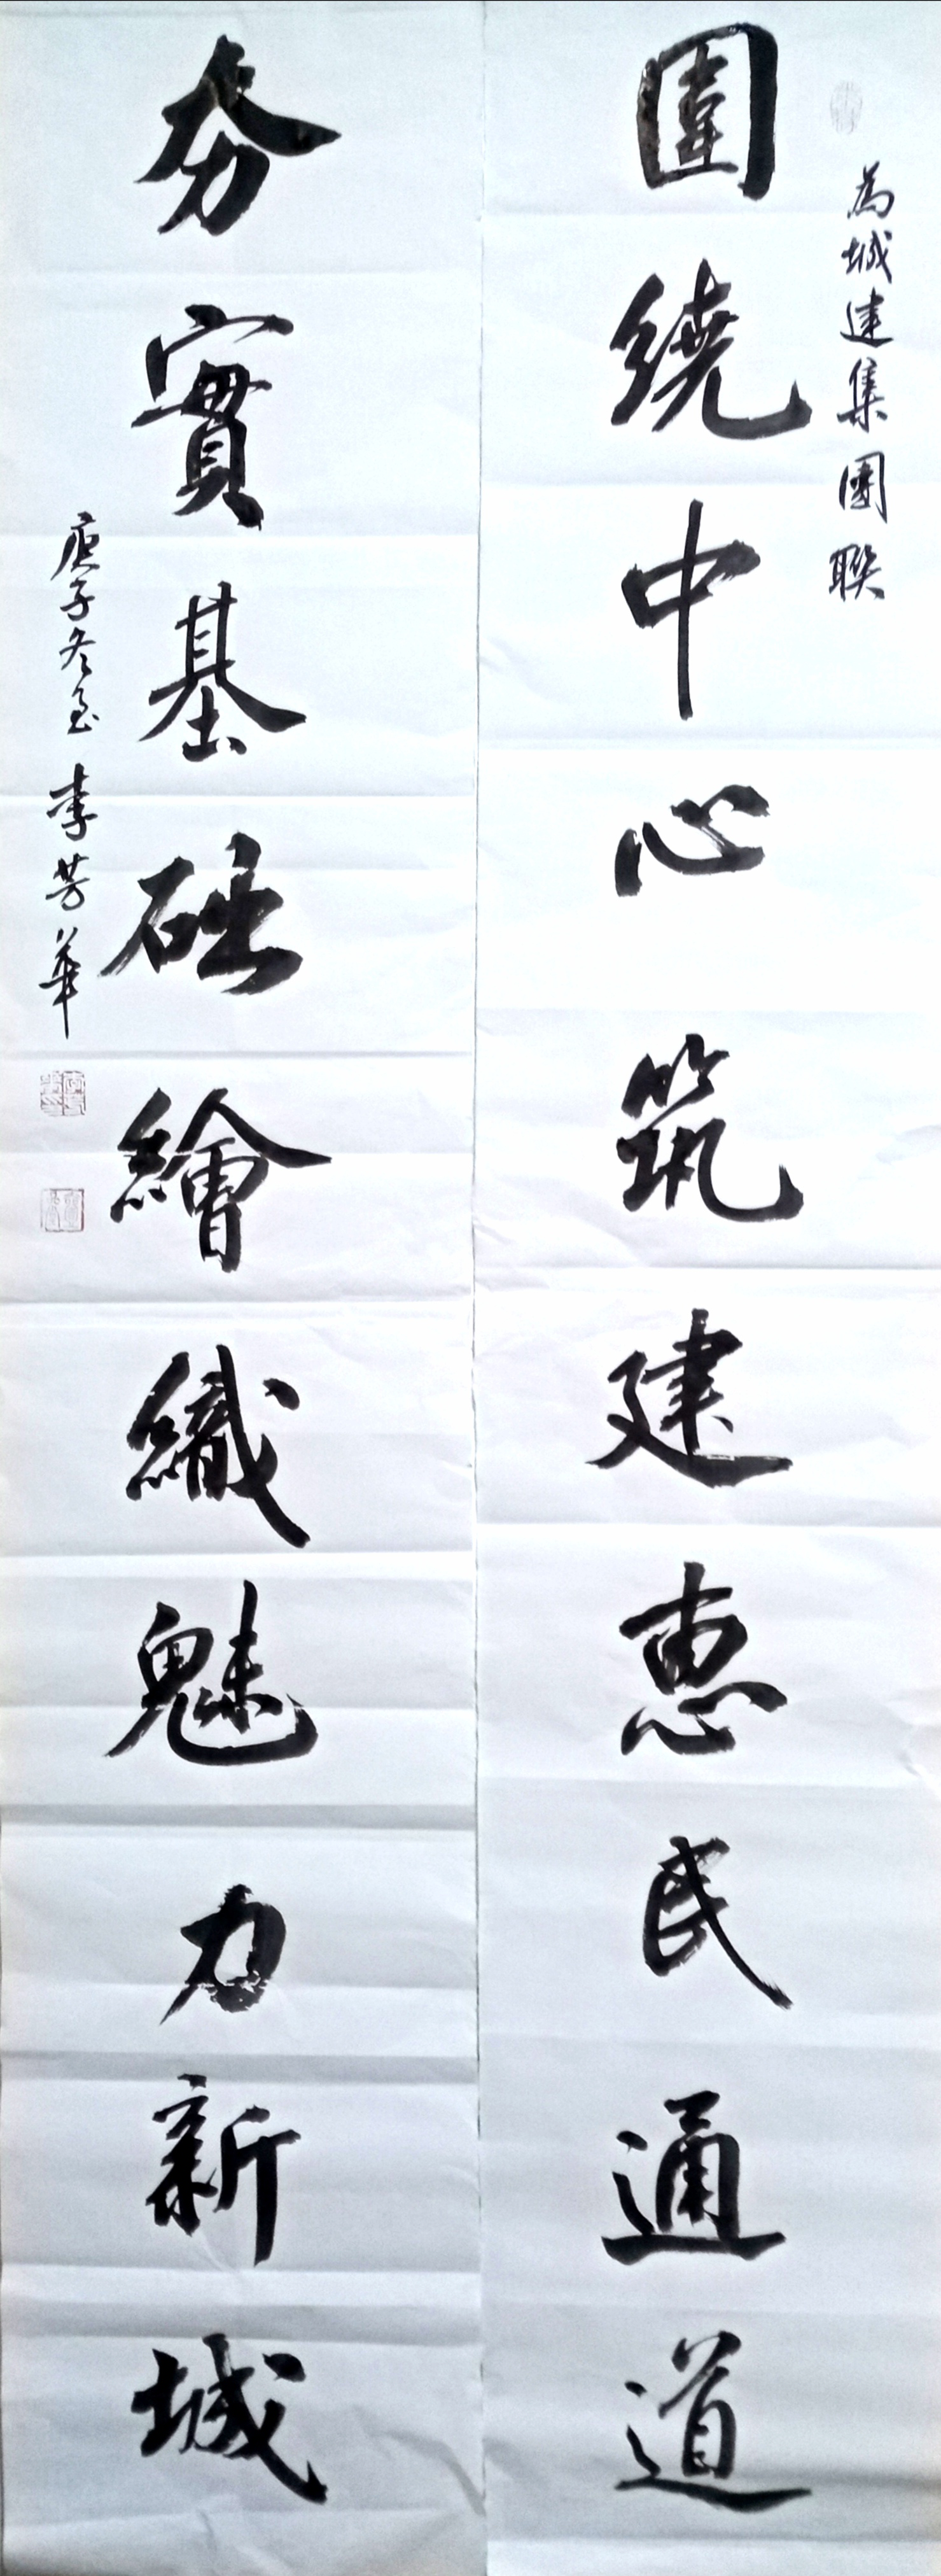 為城建集團聯
圍繞中心筑建惠民通道
夯實基础繪織魅力新城
庚子冬至 李芳華